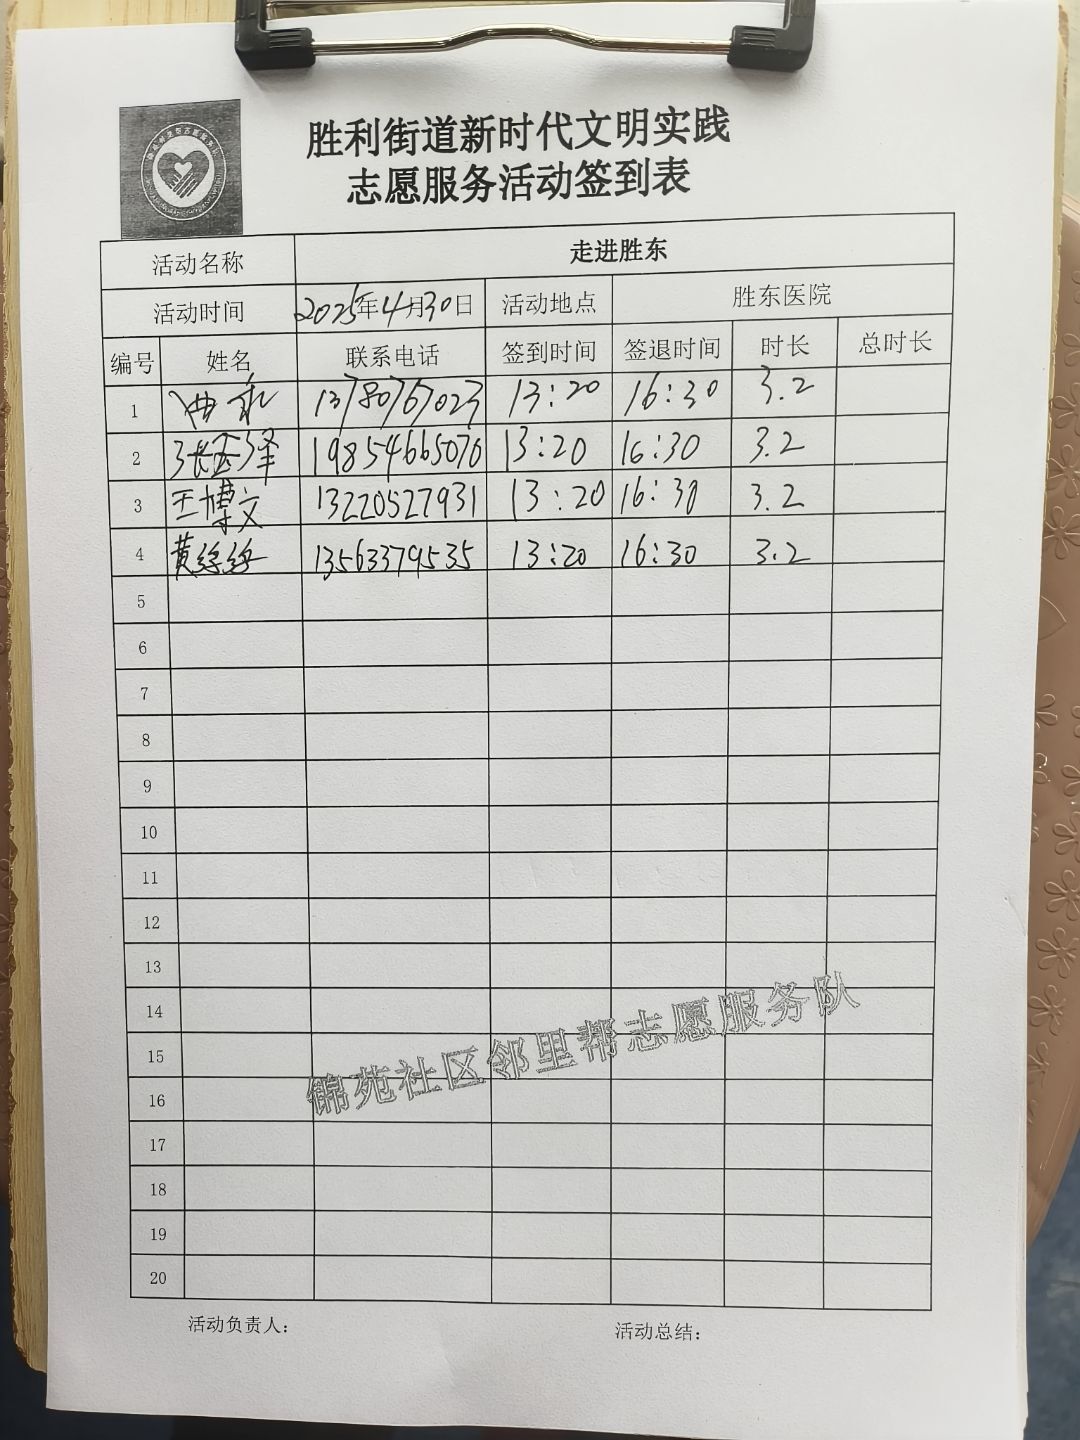 胜利街道新时代文明实践
志愿服务活动签到表
活动名称 走进胜东
活动时间 2025年4月30日 活动地点 胜东医院
编号 姓名 联系电话 签到时间 签退时间 时长 总时长
1 13780767023 13:20 16:30 3.2
2 张玉泽 19854665076 13:20 16:30 3.2
3 王博文 13220527931 13:20 16:30 3.2
4 黄绦绦 13563379535 13:20 16:30 3.2
5
6
7
8
9
10
11
12
13
14
15
16
17
18
19
20
锦苑社区邻里帮志愿服务队
活动负责人： 活动总结：